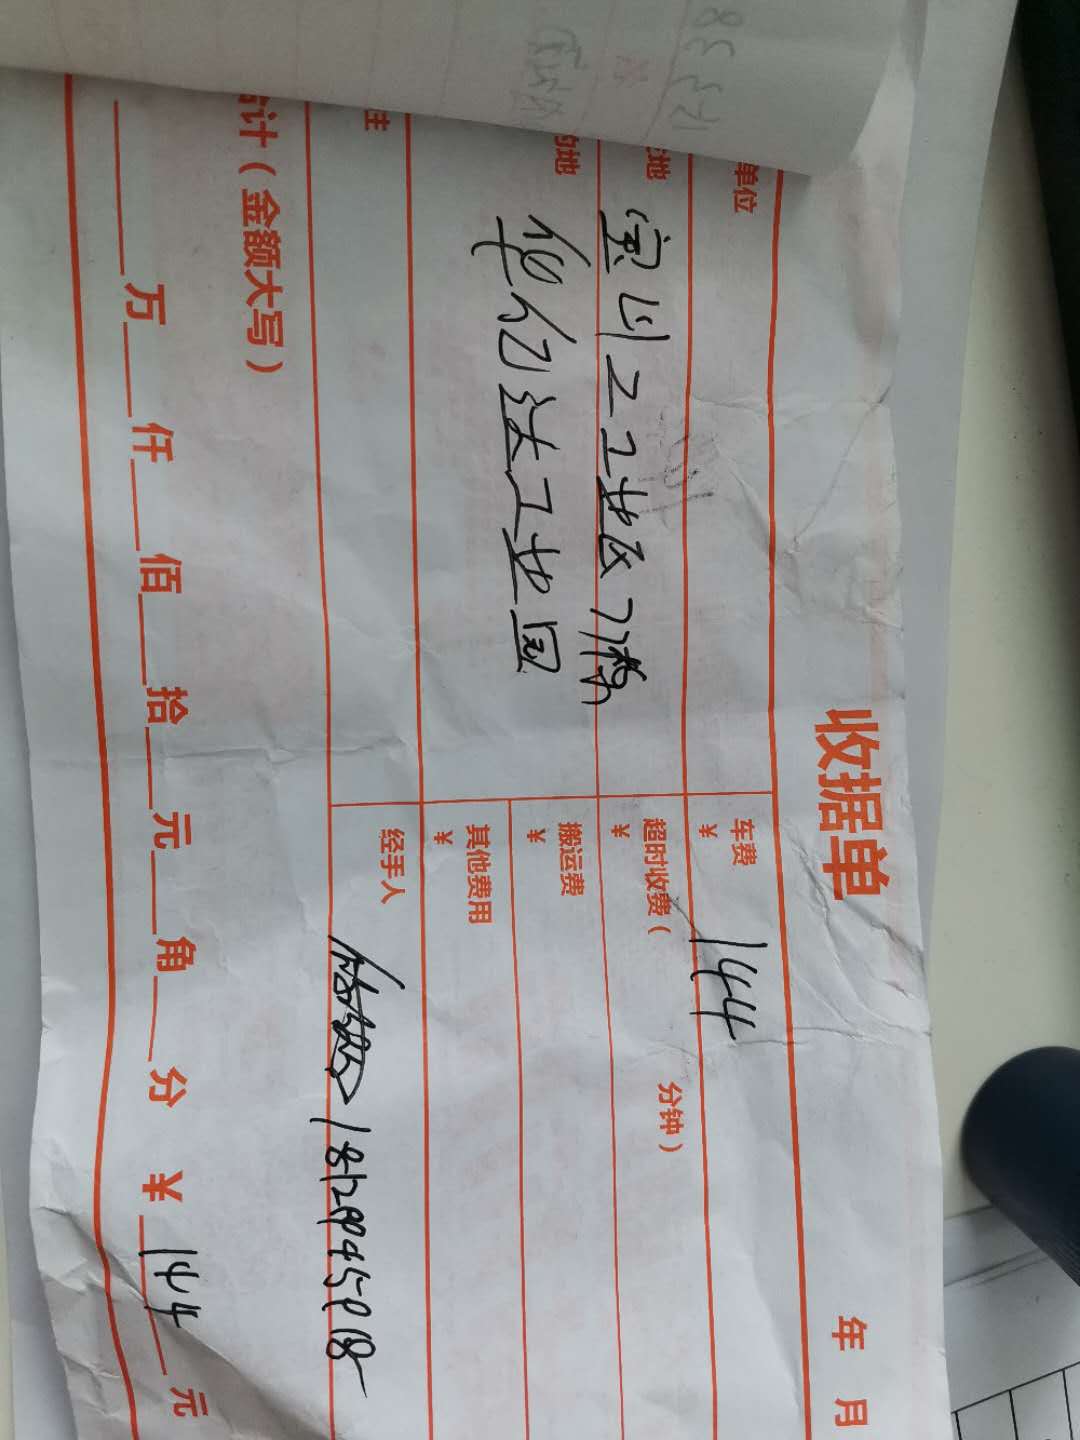 收据单
年 月
单位
车费
¥ 144
地 宝川工工业区7栋
超时收费( 分钟)
¥
的地 华亿达工业园
搬运费
¥
其他费用
¥
注
经手人
计(金额大写)
万 仟 佰 拾 元 角 分 ¥ 144 元